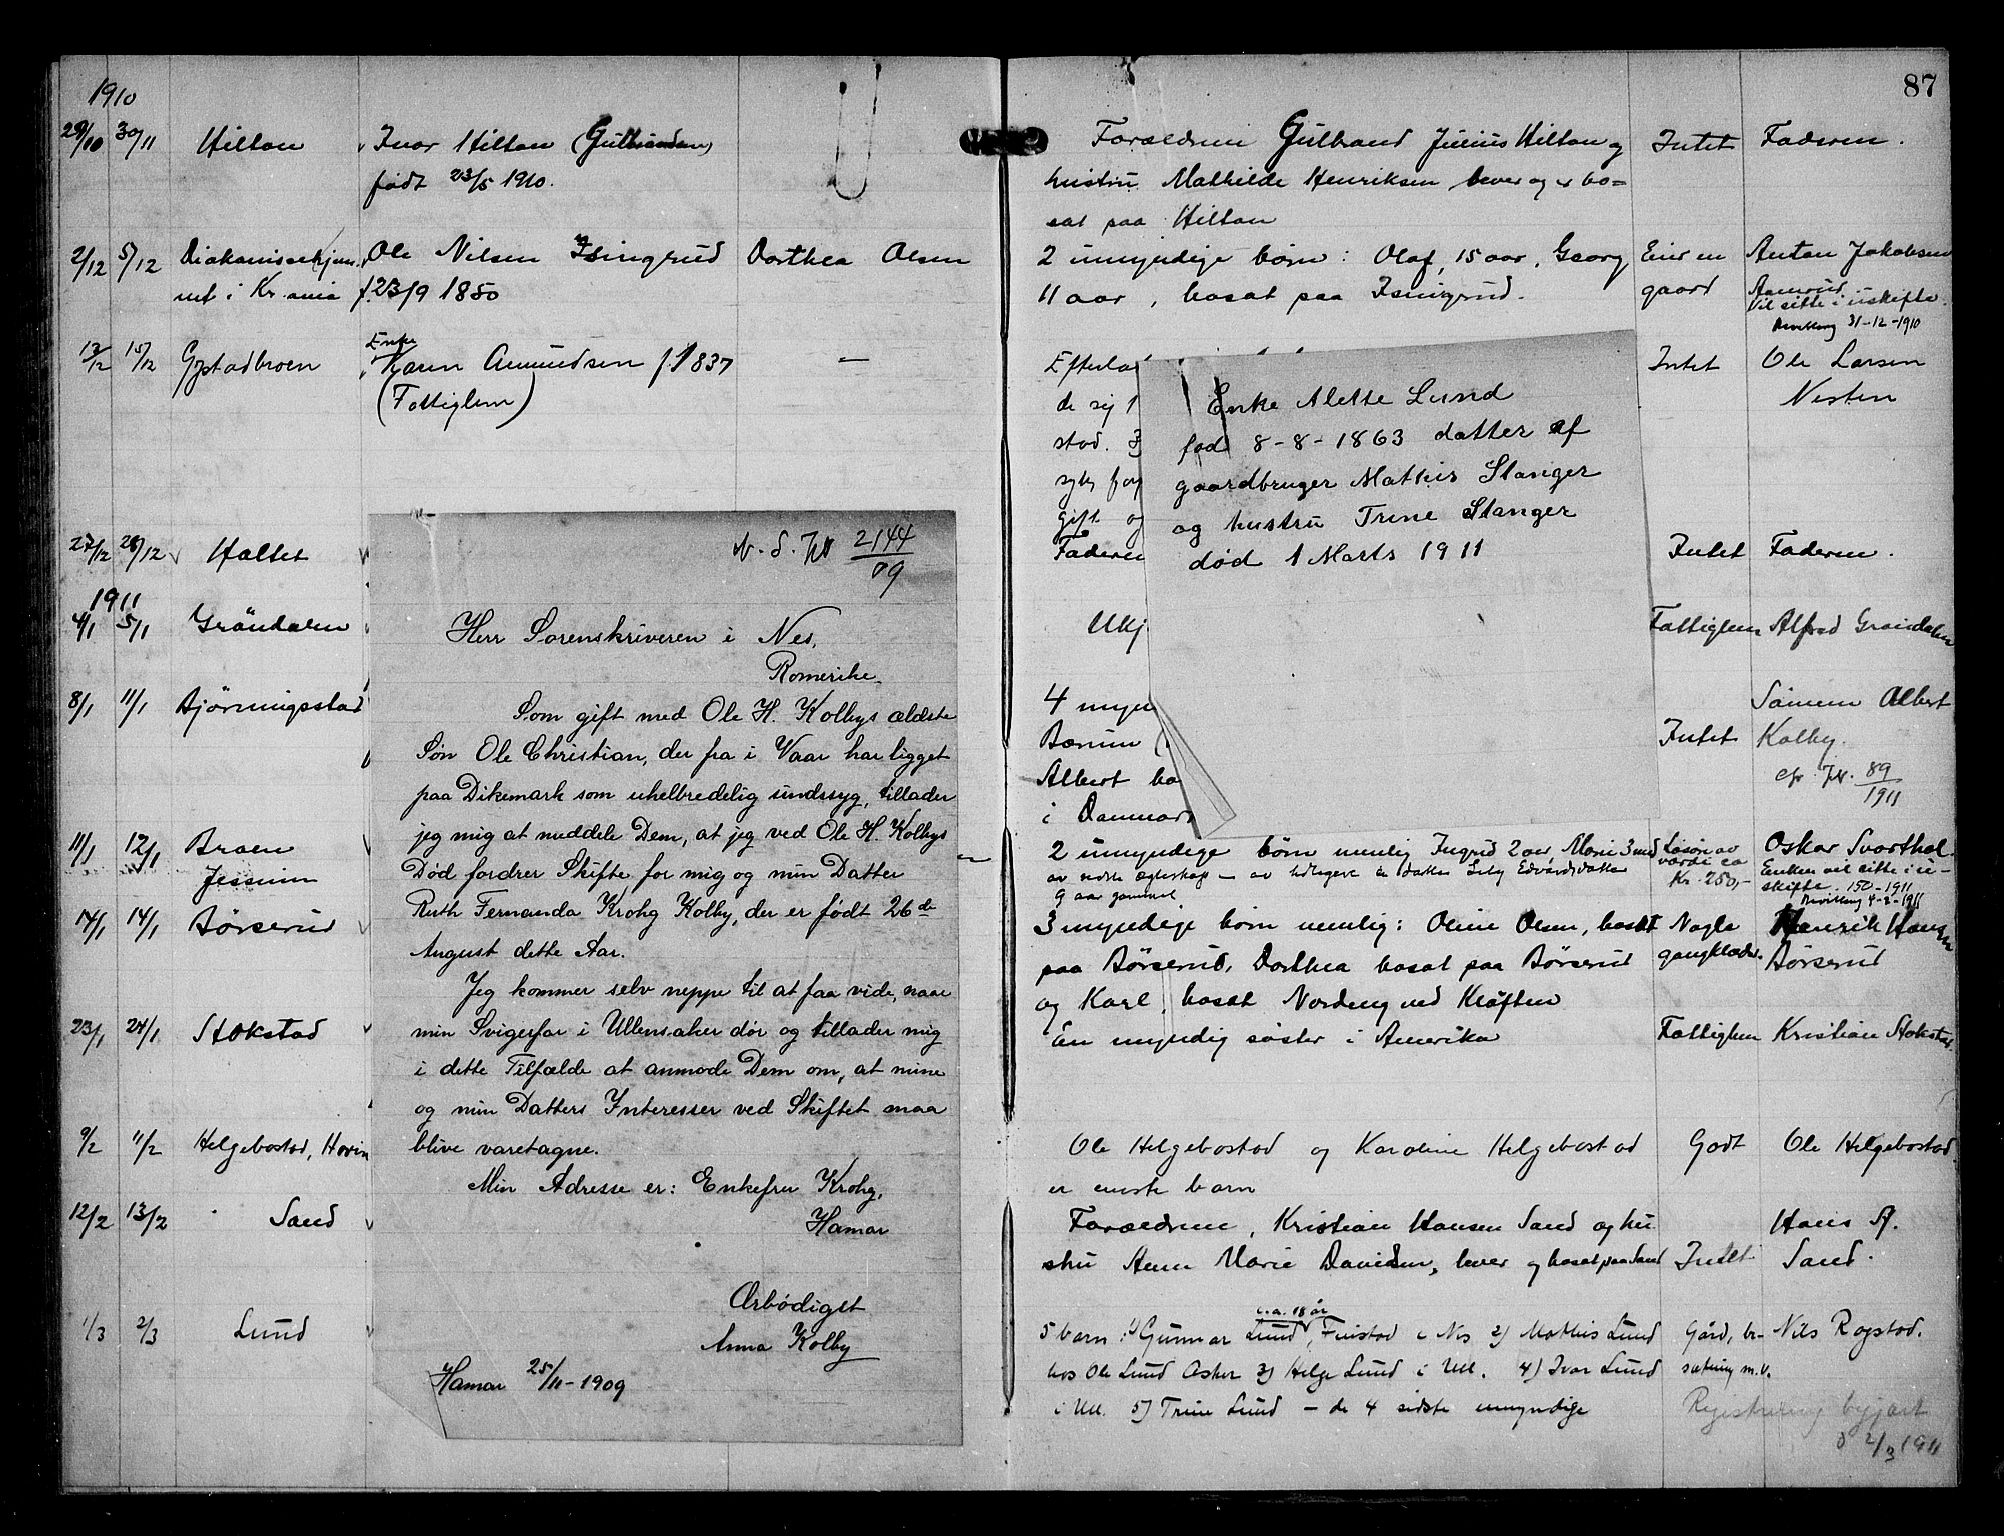 87
1910
29/10 30/11 Hilton Ivar Hilton (Gulbrandsen) Forældrene Gulbrand Julius Hilton og Intet Faderen.
født 23/5 1910. hustru Mathilde Henriksen lever og er bo=
sat paa Hilton
2/12 5/12 Diakonissehjem Ole Nilsen Isingrud Dorthea Olsen 2 umyndige børn: Olaf, 15 aar, Georg Eier en Anton Jakobsen
met i Kr.ania f. 23/9 1850 11 aar, bosat paa Isingrud. gaard Aamrud.
Vil sitte i uskifte.
Bevilling 31-12-1910
Enke
13/12 15/12 Gystadbroen Karen Amundsen f. 1837 — Efterlad Intet Ole Larsen
(Fattiglem) de sig 1 Nesten
stad. 3
syk for
gift og
27/12 28/12 Holtet Faderen Intet Faderen.
1911
4/1 5/1 Gröndalen Ukj Fattiglem Alfred Gröndalen
8/1 11/1 Bjørningsstad 4 myn Sønnen Albert
Bærum Intet Kolby.
Albert bo cfr. JN. 89/1911
i Danmark
11/1 12/1 Braen 2 umyndige børn nemlig Ingrid 2 aar Marie 3 md Løsøre av Oskar Svarthol.
Jessum av sidste ægteskap – av tidligere er datter Lely Edvardsdatter værdi ca Enken vil sitte i u-
9 aar gammel Kr. 250,- skifte. 150-1911
Bevilling 4-2-1911
14/1 14/1 Børserud 3 myndige børn nemlig: Oline Olsen, bosat Nogle Henrik Hansen
paa Børserud, Dorthea bosat paa Børserud gangklæder. Børserud
og Karl, bosat Nordeng ved Kløften
23/1 24/1 Stokstad En myndig søster i Amerika Fattiglem Kristian Stokstad.
9/2 11/2 Helgebostad, Hovin Ole Helgebostad og Karoline Helgebostad Godt Ole Helgebostad
er eneste barn
12/2 13/2 Sand Forældrene, Kristian Hansen Sand og hu Hans A.
stru Anne Marie Davidsen, lever og bosat paa Sand Intet Sand.
c.a. 18 år
1/3 2/3 Lund 5 barn: 1) Gunnar Lund, Finstad i Nes 2) Mathis Lund Gård, be- Nils Rogstad.
hos Ole Lund Asker 3) Helge Lund i Ull. 4) Ivar Lund sætning m.v.
i Ull. 5) Trine Lund – de 4 sidste umyndige Registrering begjært
d 2/3 1911
N. S. JN 2144/09
Herr Sorenskriveren i Nes,
Romerike.
Som gift med Ole H. Kolbys ældste
Søn Ole Christian, der fra i Vaar har ligget
paa Dikemark som uhelbredelig sindssyg, tillader
jeg mig at meddele Dem, at jeg ved Ole H. Kolbys
Død fordrer Skifte for mig og min Datter
Ruth Fernanda Krohg Kolby, der er født 26de
August dette Aar.
Jeg kommer selv neppe til at faa vide, naar
min Svigerfar i Ullensaker dør og tillader mig
i dette Tilfælde at anmode Dem om, at mine
og min Datters Interesser ved Skiftet maa
blive varetagne.
Min Adresse er: Enkefru Krohg,
Hamar
Ærbödigst
Anna Kolby
Hamar 25/11-1909
Enke Alette Lund
fød 8-8-1863 datter af
gaardbruger Mathis Slanger
og hustru Trine Slanger
død 1 Marts 1911